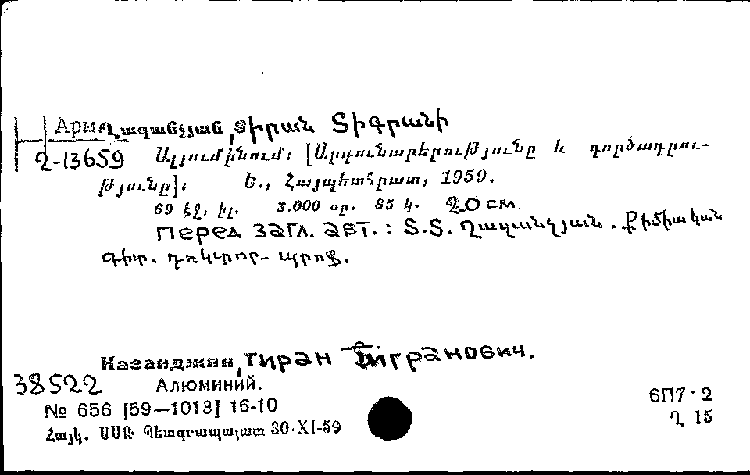 Арм
Ղազանչյան, Տիրան Տիգրանի
2-13659 Ալյումինում։ [Արդյունաբերությունը և գործադրու-
թյունը]։ Ե., Հայպետհրատ, 1959.
69 էջ, իլ. 3.000 օր. 85 կ. 20 см
перед загл. авт.: Տ.Տ. Ղազանչյան. Քիմիական
գիտ. դոկտոր- պրոֆ.
Казанджян, Тиран Тигранович.
38522 Алюминий.
№ 656 [59—1013] 16-10
6П7·2
Հայկ. ՍՍՌ Պետգրապալատ 30·XI-59
Ղ 15